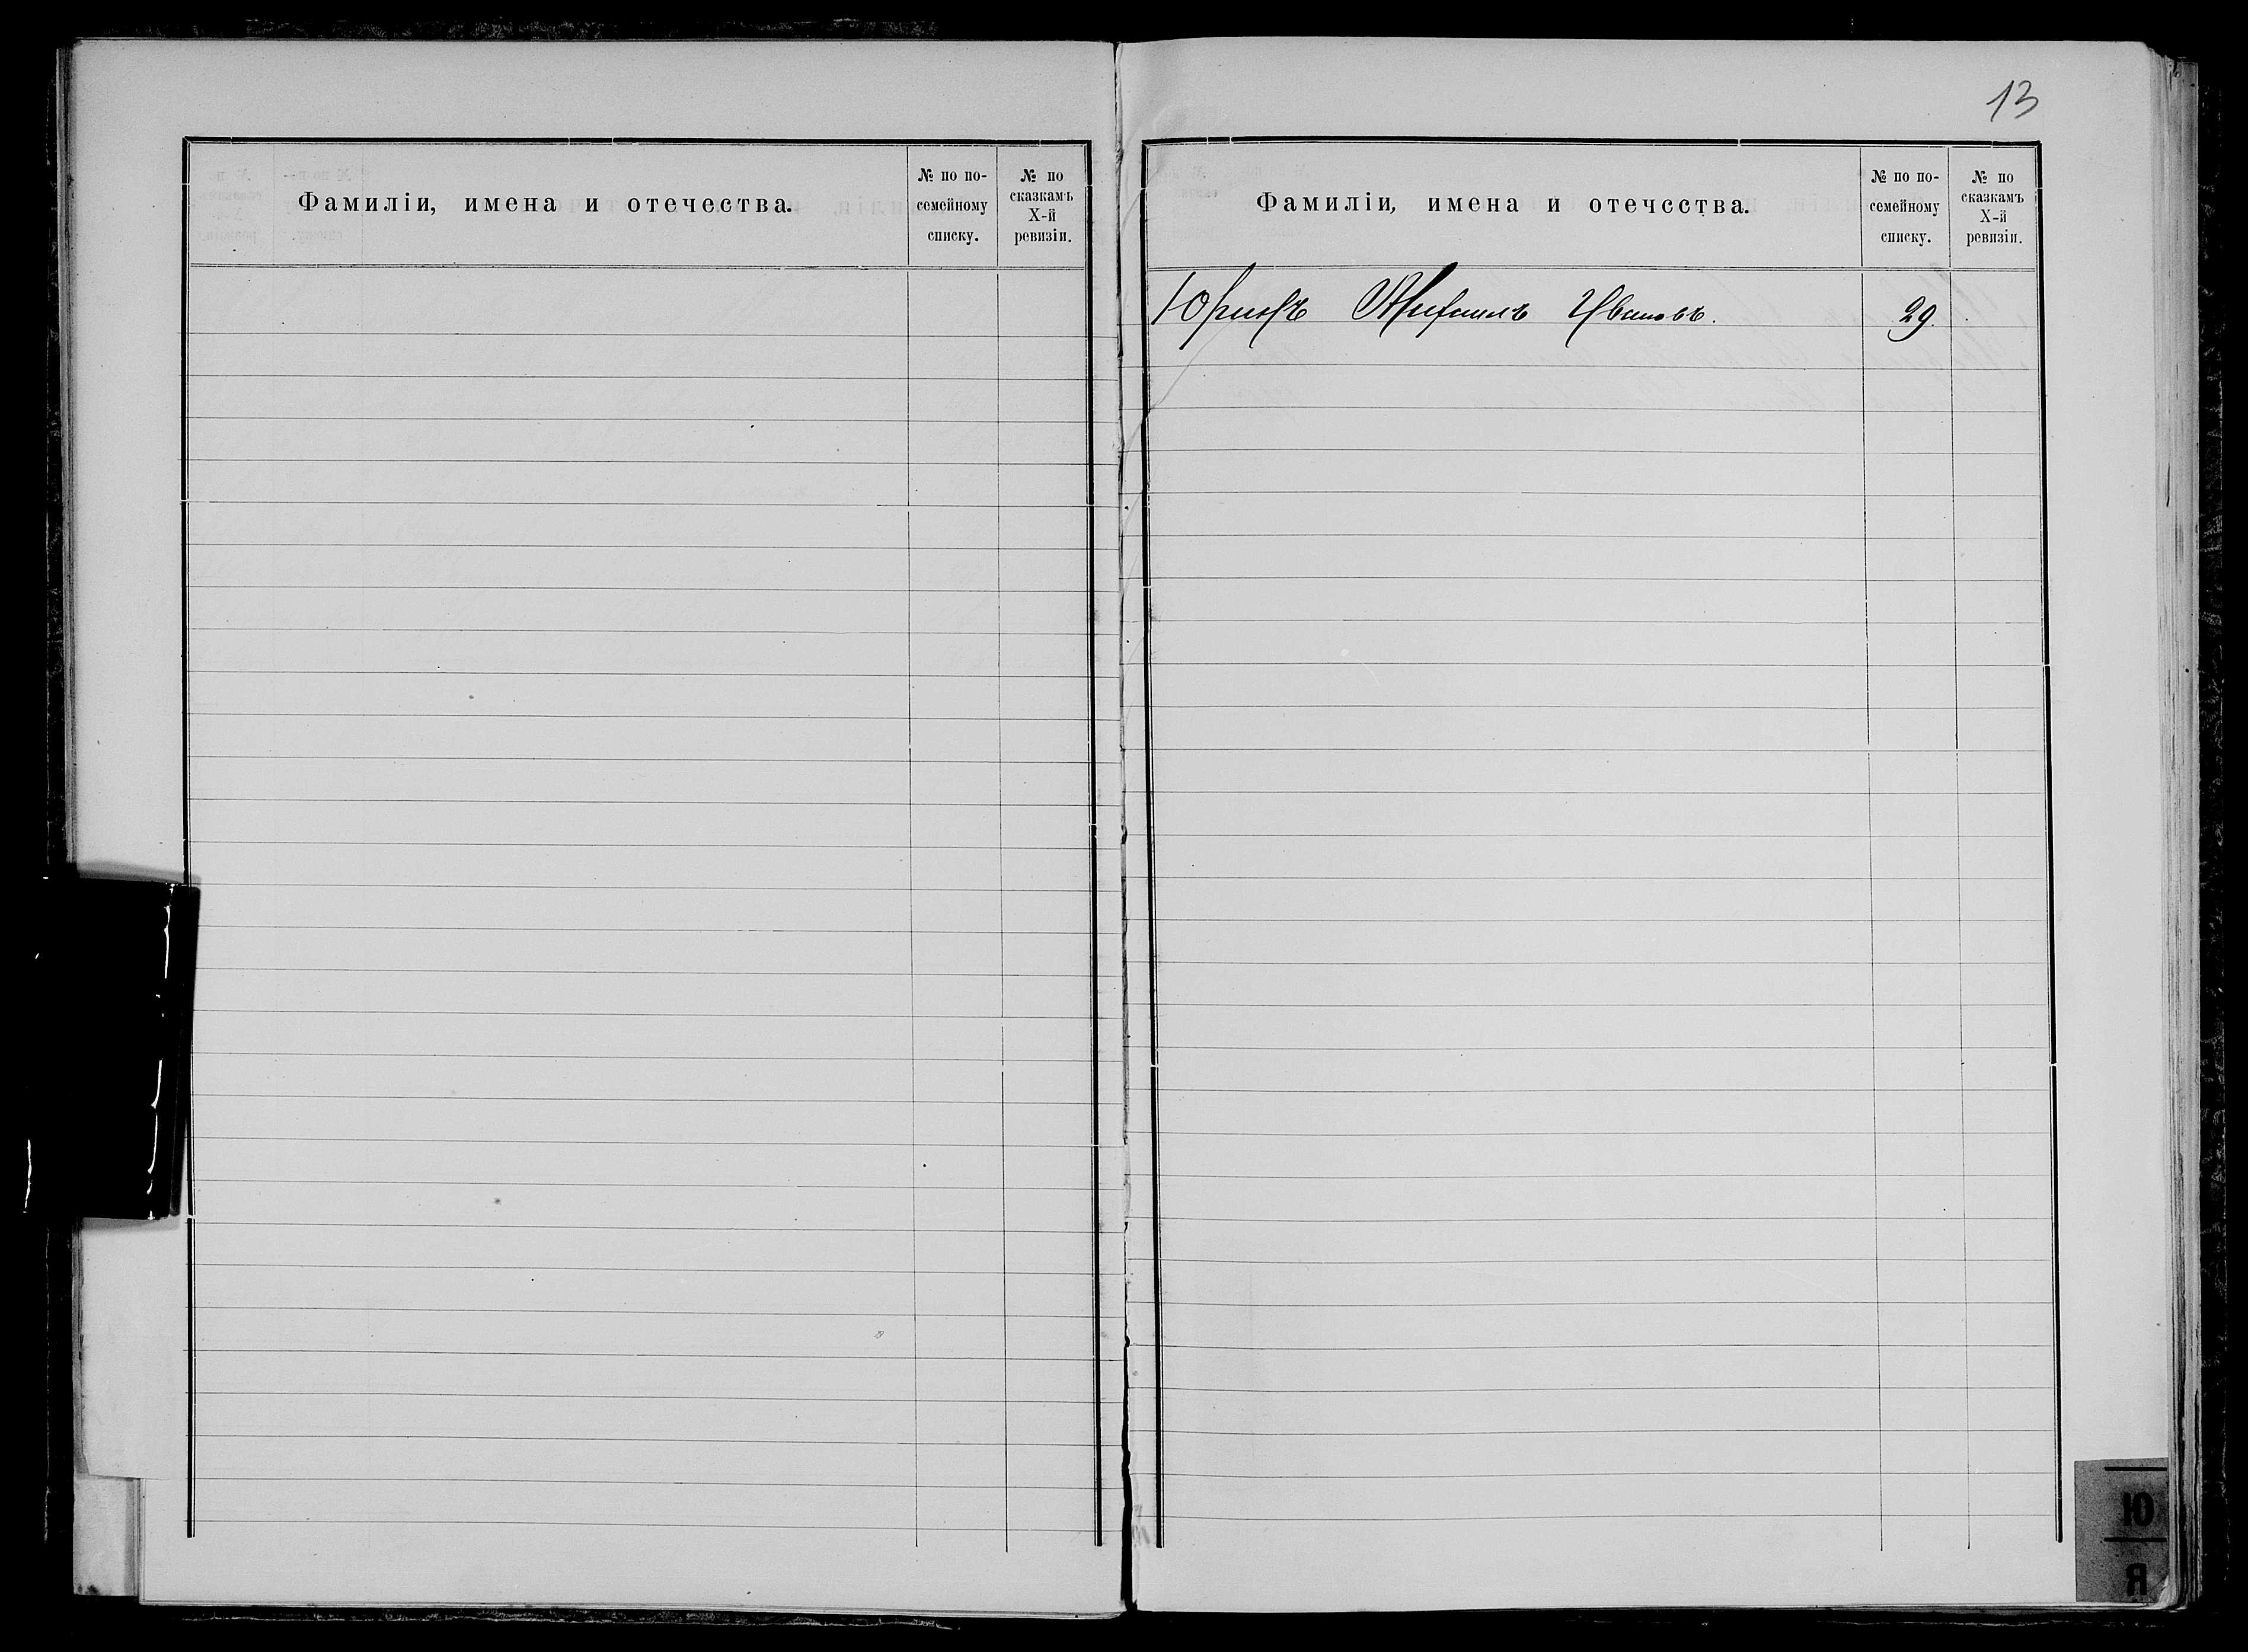 13
Фамиліи, имена и отечества.
№ по по-
семейному
списку.
№ по
сказкамъ
X-й
ревизіи.
Фамиліи, имена и отечества.
№ по по-
семейному
списку.
№ по
сказкамъ
X-й
ревизіи.
Юринъ Михаилъ Ивановъ. 29.
Ю
Я